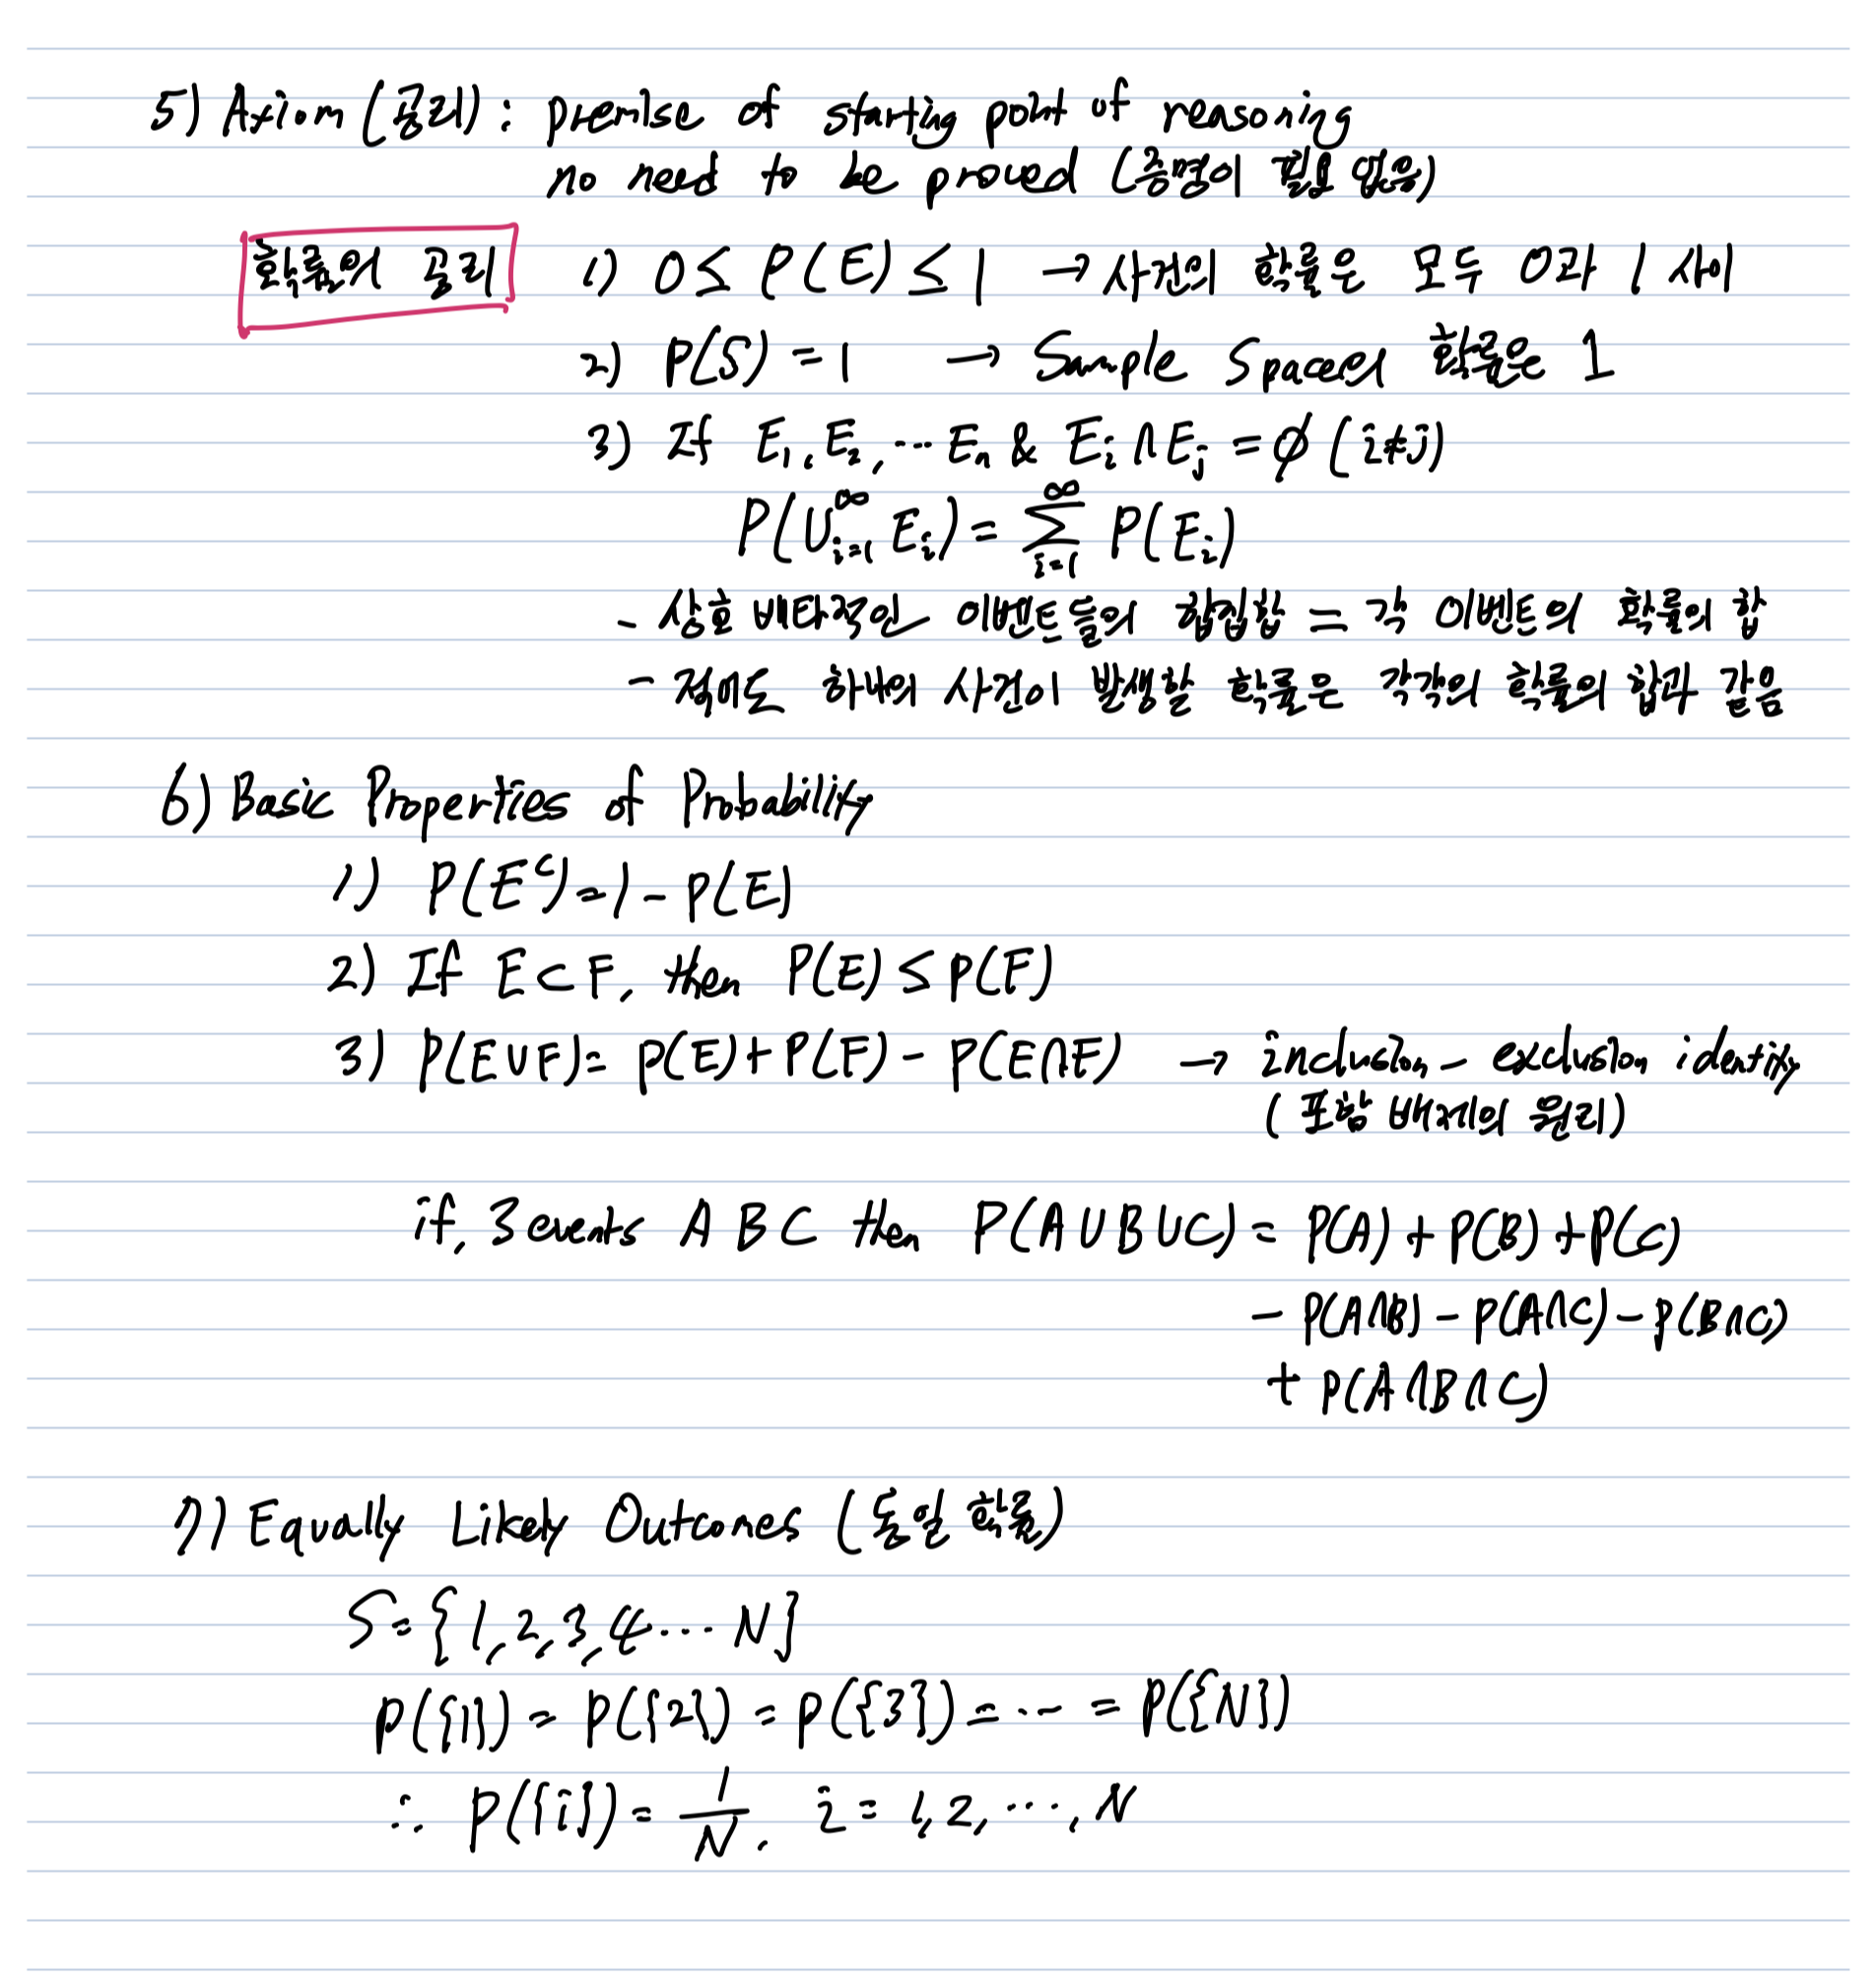 5) Axiom (공리) : premise of starting point of reasoning
no need to be proved (증명이 필요 없음)
확률의 공리 1) 0 ≤ P(E) ≤ 1 → 사건의 확률은 모두 0과 1 사이
2) P(S) = 1 → Sample Space의 확률은 1
3) If E₁, E₂, ⋯ Eₙ & Eᵢ ∩ Eⱼ = ∅ (i≠j)
P(∪ᵢ₌₁^∞ Eᵢ) = ∑ᵢ₌₁^∞ P(Eᵢ)
- 상호 배타적인 이벤트들의 합집합 = 각 이벤트의 확률의 합
- 적어도 하나의 사건이 발생할 확률은 각각의 확률의 합과 같음
6) Basic Properties of Probability
1) P(Eᶜ) = 1 - P(E)
2) If E ⊂ F, then P(E) ≤ P(F)
3) P(E ∪ F) = P(E) + P(F) - P(E ∩ F) → inclusion - exclusion identity
(포함 배제의 원리)
if, 3 events A B C then P(A ∪ B ∪ C) = P(A) + P(B) + P(C)
- P(A∩B) - P(A∩C) - P(B∩C)
+ P(A∩B∩C)
7) Equally Likely Outcomes (동일 확률)
S = {1, 2, 3, 4 ⋯ N}
P({1}) = P({2}) = P({3}) = ⋯ = P({N})
∴ P({i}) = 1/N, i = 1, 2, ⋯, N